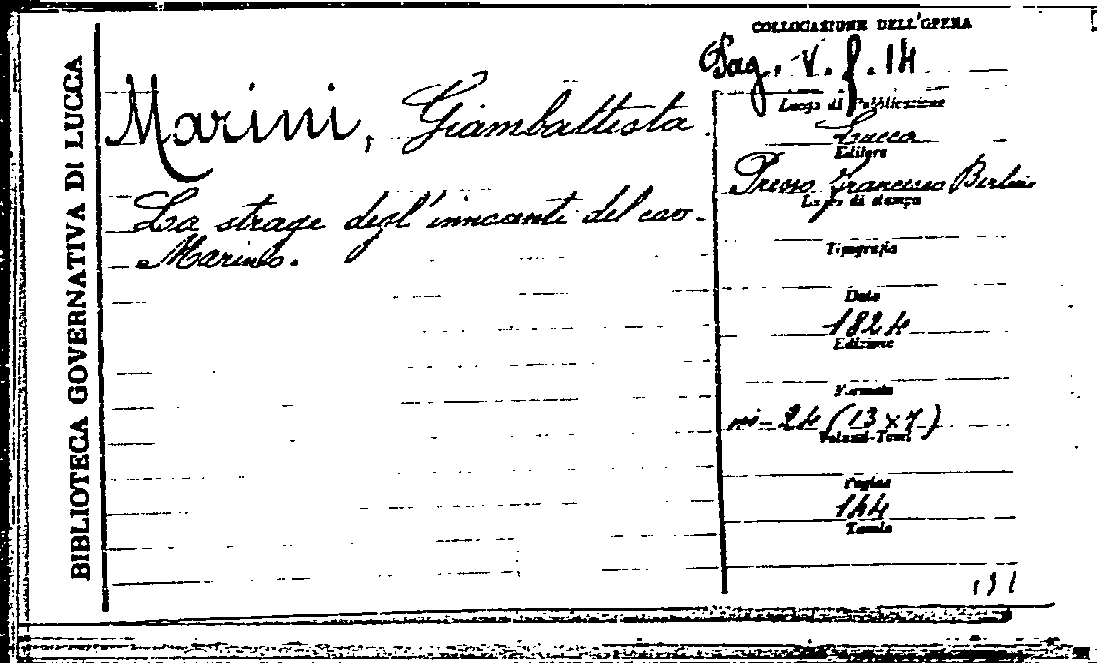 BIBLIOTECA GOVERNATIVA DI LUCCA
COLLOCAZIONE DELL'OPERA
Pag. V. f. 14
Marini, Giambattista
La strage degl'innocenti del cav.
Marino.
Luogo di Pubblicazione
Lucca
Editore
Presso Francesco Bertini
Luogo di stampa
Tipografia
Data
1824
Edizione
Formato
in-24 (13x7)
Volumi-Tomi
Pagine
144
Tavole